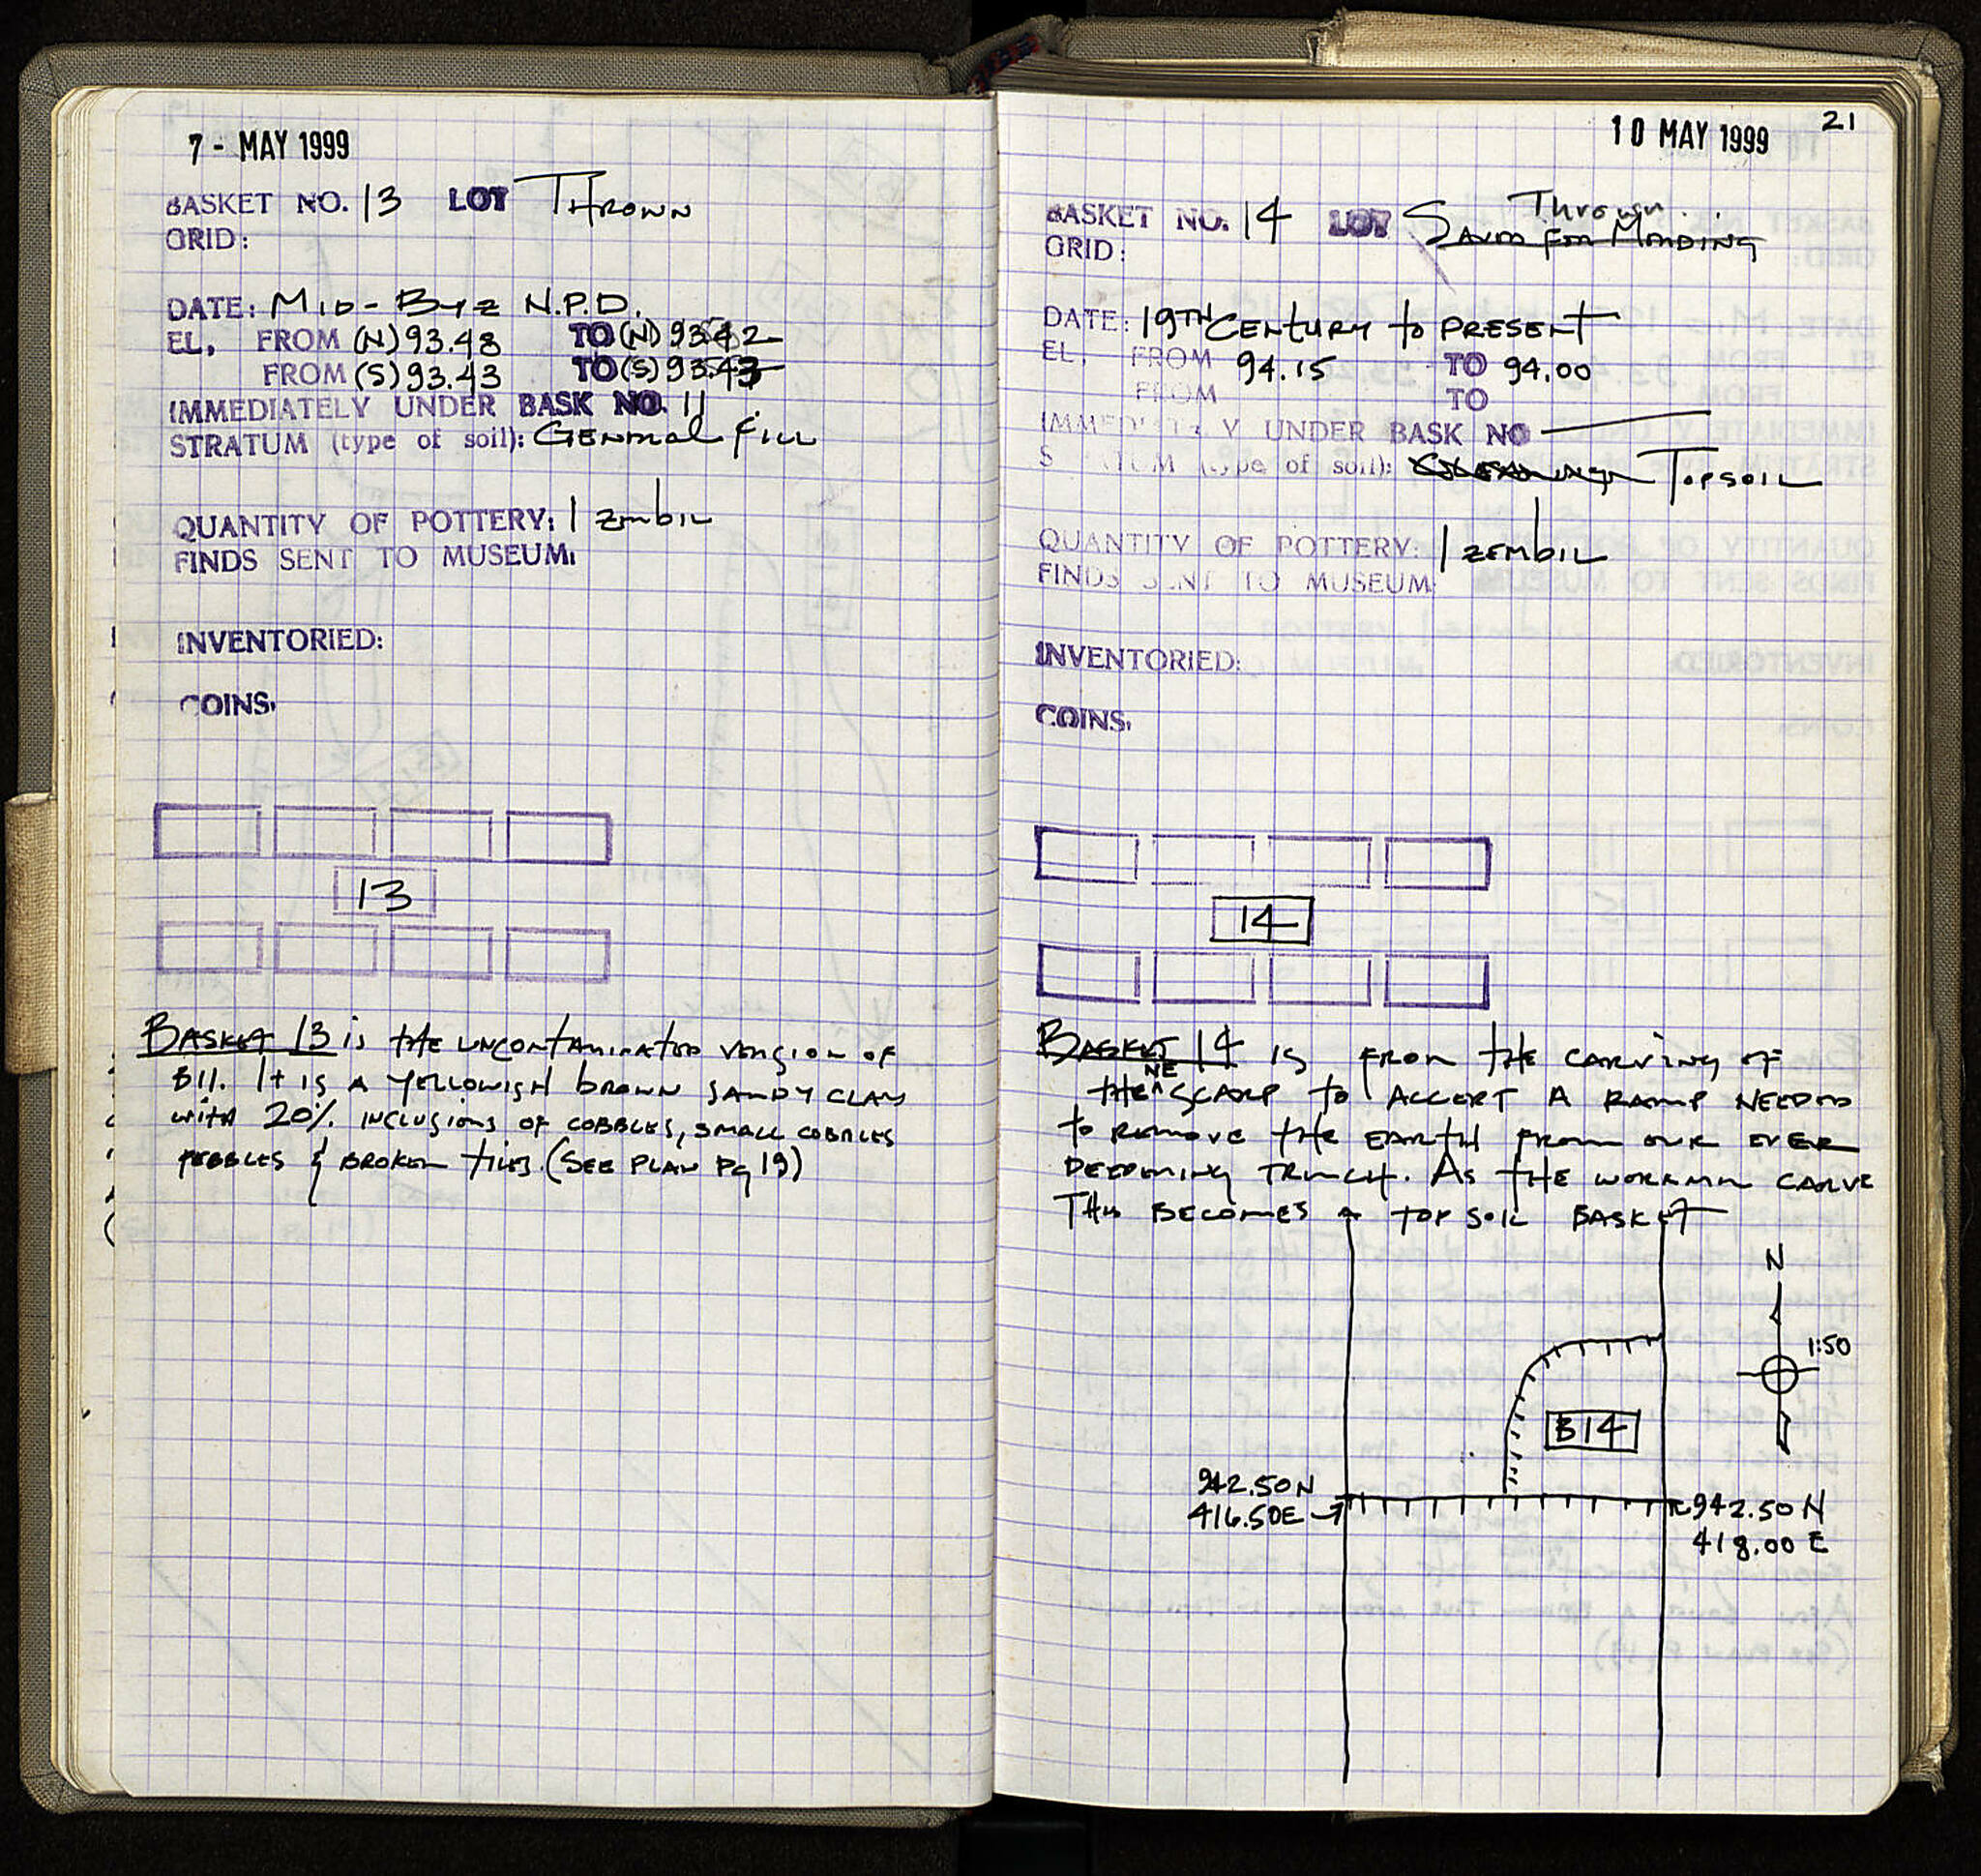 7 - MAY 1999
BASKET NO. 13 LOT THROWN
GRID:
DATE: MID-BYZ N.P.D.
EL, FROM (N) 93.48 TO (N)
FROM (S) 93.43 TO (S)
IMMEDIATELY UNDER BASK NO. 11
STRATUM (type of soil): GENERAL FILL
QUANTITY OF POTTERY: 1 ZEMBIL
FINDS SENT TO MUSEUM:
INVENTORIED:
COINS.
13
BASKET 13 is THE UNCONTAMINATED VERSION OF
B11. It is A YELLOWISH BROWN SANDY CLAY
WITH 20% INCLUSIONS OF COBBLES, SMALL COBBLES
PEBBLES & BROKEN TILES. (SEE PLAN Pg 19)
21
10 MAY 1999
Thrown.
BASKET NO. 14 LOT SAVED FOR MENDING
GRID:
DATE: 19TH CENTURY to PRESENT
EL, FROM 94.15 TO 94.00
FROM TO
IMMEDIATELY UNDER BASK NO —
STRATUM (type of soil): TOPSOIL
QUANTITY OF POTTERY: 1 ZEMBIL
FINDS SENT TO MUSEUM
INVENTORIED:
COINS.
14
BASKET 14 IS FROM THE CARVING OF
THE NE SCARP to ACCEPT A RAMP NEEDED
to REMOVE THE EARTH FROM OUR EVER
DEEPENING TRENCH. AS THE WORKMEN CARVE
THIS BECOMES A TOPSOIL BASKET
N
1:50
B14
942.50N
416.50E
942.50 N
418.00 E